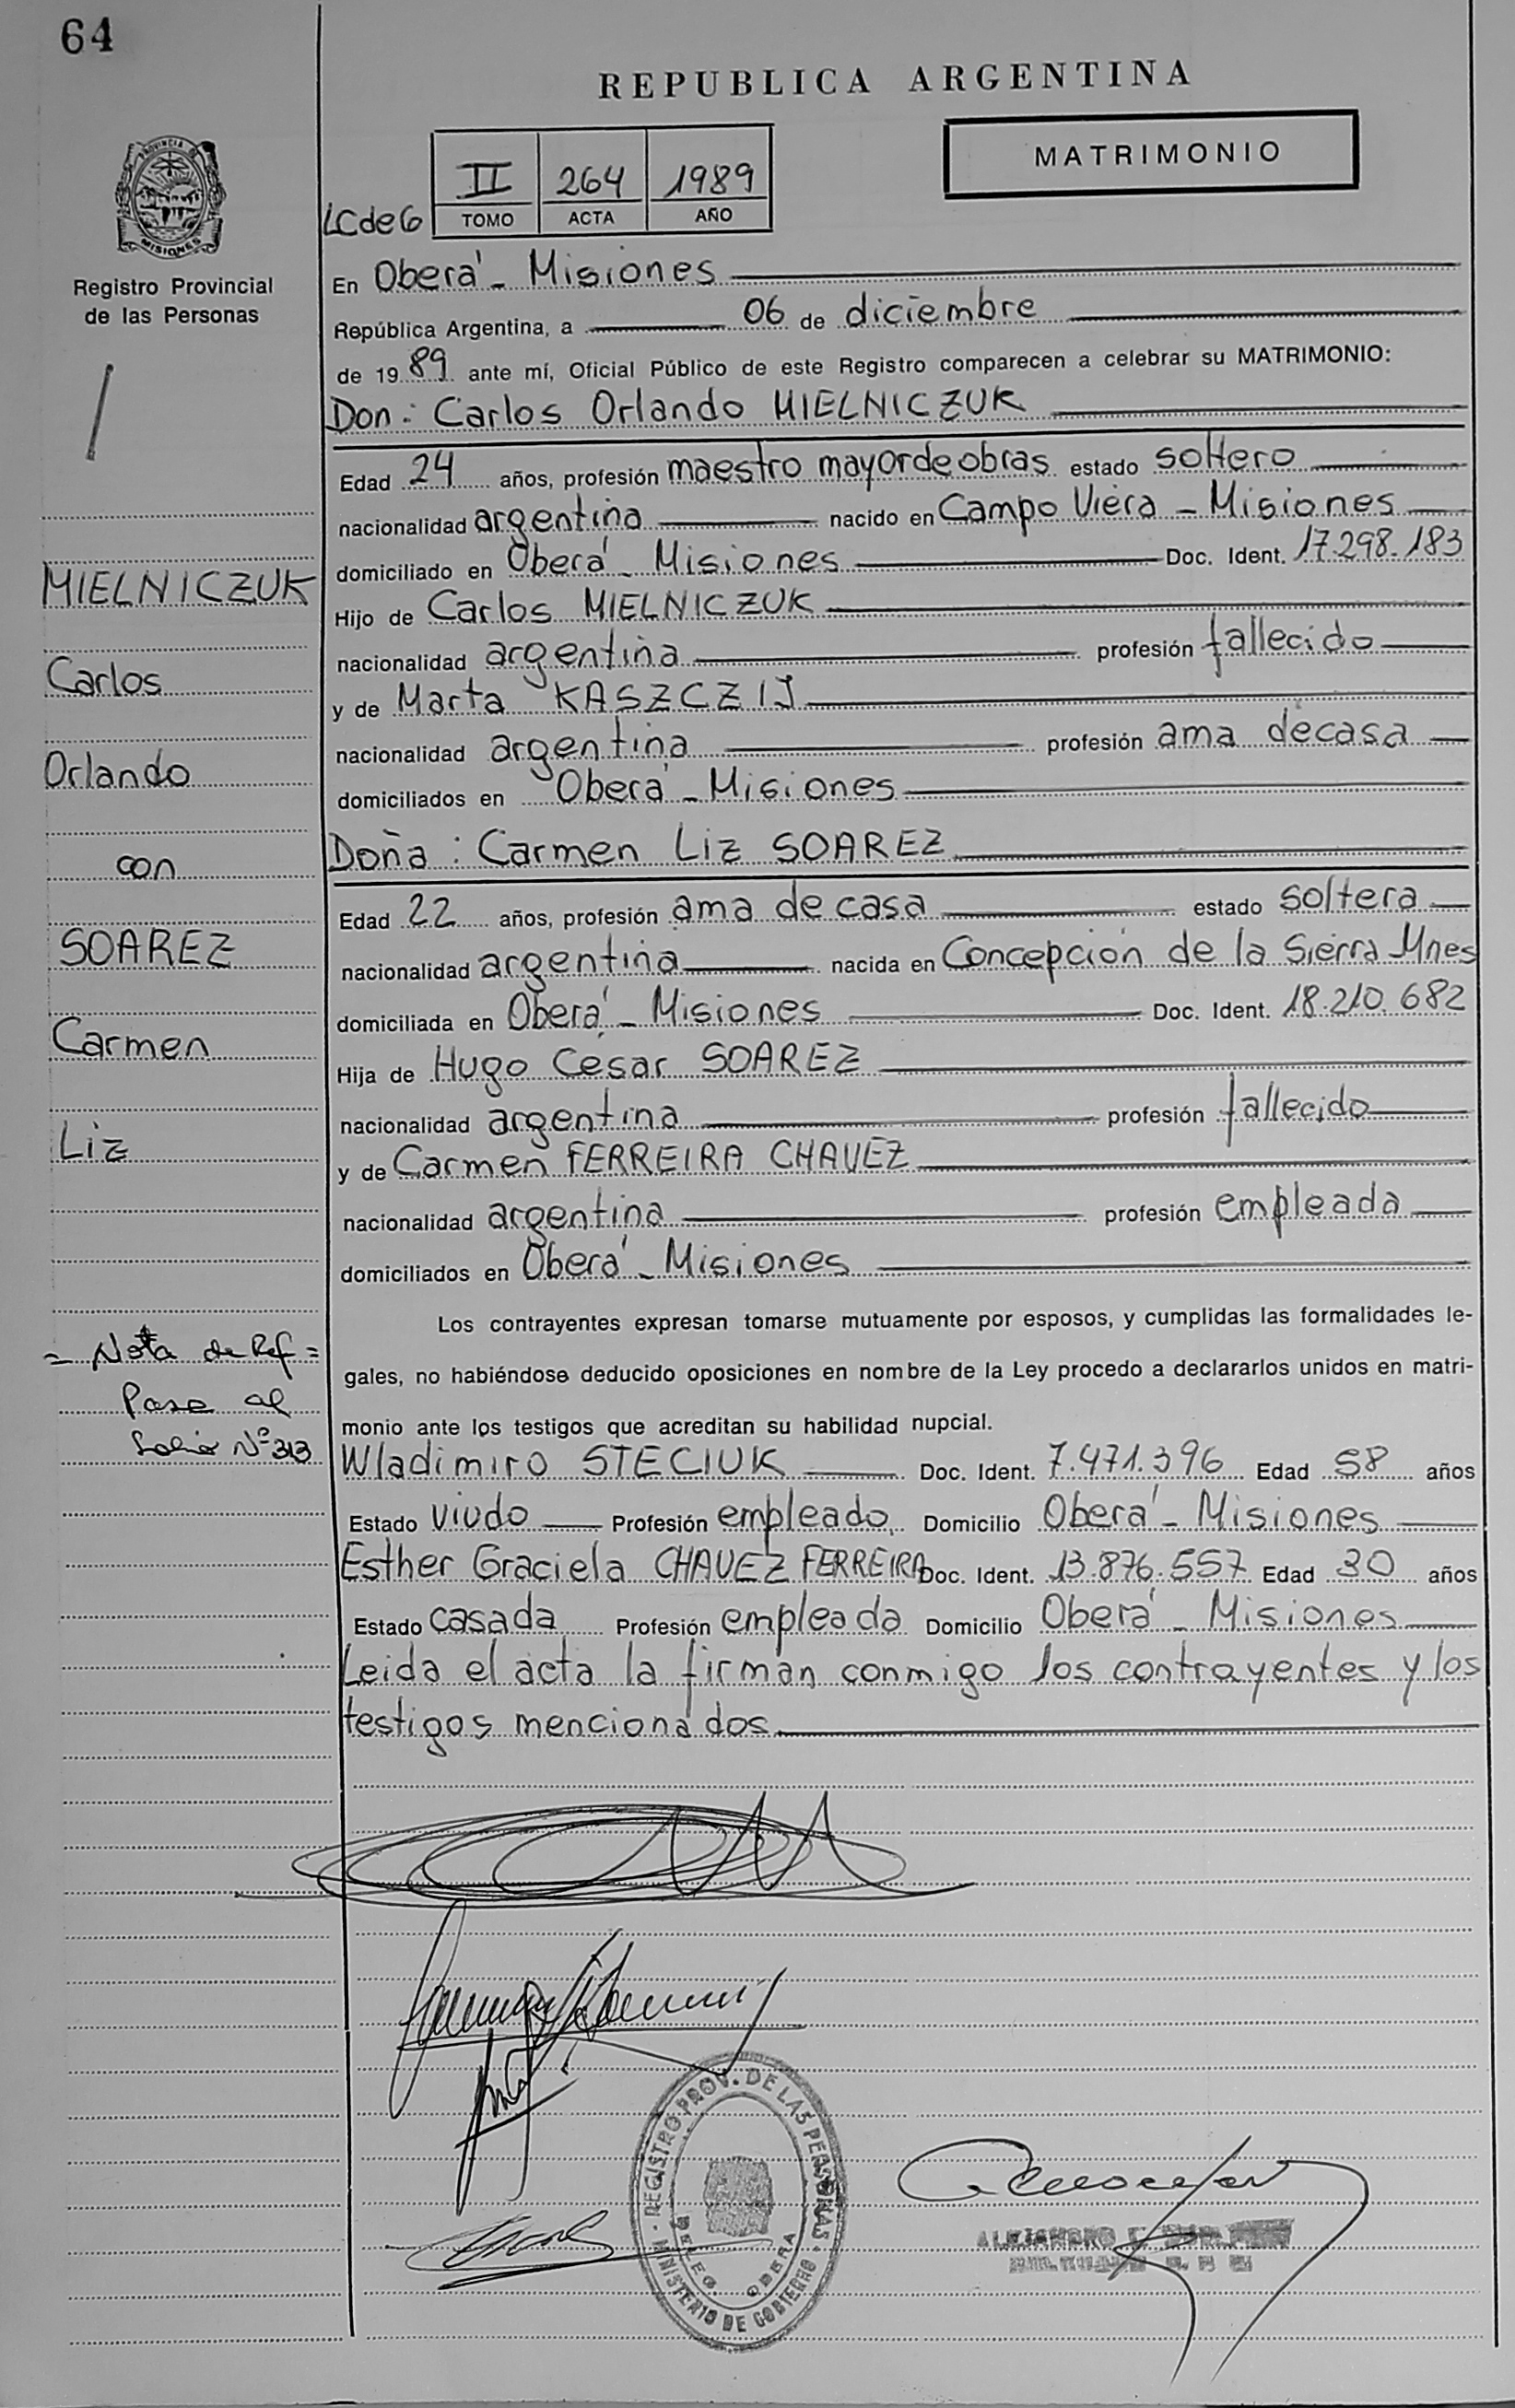 64
REPUBLICA ARGENTINA
MATRIMONIO
PROVINCIA DE
MISIONES
Registro Provincial
de las Personas
LCde6
II 264 1989
TOMO ACTA AÑO
En Oberá - Misiones
República Argentina, a 06 de diciembre
de 1989 ante mí, Oficial Público de este Registro comparecen a celebrar su MATRIMONIO:
Don: Carlos Orlando MIELNICZUK
Edad 24 años, profesión maestro mayor de obras estado soltero
nacionalidad argentina nacido en Campo Viera - Misiones
domiciliado en Oberá - Misiones Doc. Ident. 17.298.183
Hijo de Carlos MIELNICZUK
nacionalidad argentina profesión fallecido
y de Marta KASZCZIJ
nacionalidad argentina profesión ama de casa
domiciliados en Oberá - Misiones
Doña: Carmen Liz SOAREZ
Edad 22 años, profesión ama de casa estado soltera
nacionalidad argentina nacida en Concepción de la Sierra Mnes
domiciliada en Oberá - Misiones Doc. Ident. 18.210.682
Hija de Hugo César SOAREZ
nacionalidad argentina profesión fallecido
y de Carmen FERREIRA CHAVEZ
nacionalidad argentina profesión empleada
domiciliados en Oberá - Misiones
Los contrayentes expresan tomarse mutuamente por esposos, y cumplidas las formalidades le-
gales, no habiéndose deducido oposiciones en nombre de la Ley procedo a declararlos unidos en matri-
monio ante los testigos que acreditan su habilidad nupcial.
Wladimiro STECIUK Doc. Ident. 7.471.396 Edad 58 años
Estado viudo Profesión empleado Domicilio Oberá - Misiones
Esther Graciela CHAVEZ FERREIRA Doc. Ident. 13.876.557 Edad 30 años
Estado casada Profesión empleada Domicilio Oberá - Misiones
Leida el acta la firman conmigo los contrayentes y los
testigos mencionados
MIELNICZUK
Carlos
Orlando
con
SOAREZ
Carmen
Liz
= Nota de Ref =
Pase al
Folio Nº 313
REGISTRO PROV. DE LAS PERSONAS
MINISTERIO DE GOBIERNO
DELEG. OBERA
ALEJANDRO